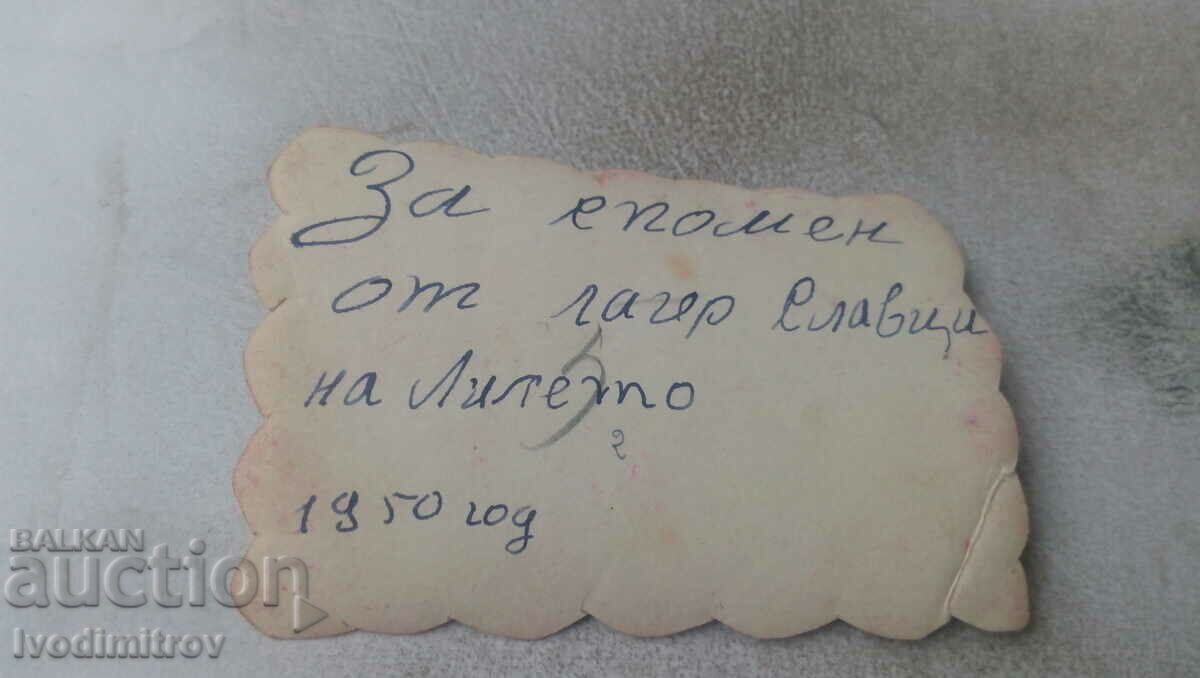 За спомен
от лагер Славци
на Лилето
5
2
1950 год
BALKAN
auction
Ivodimitrov